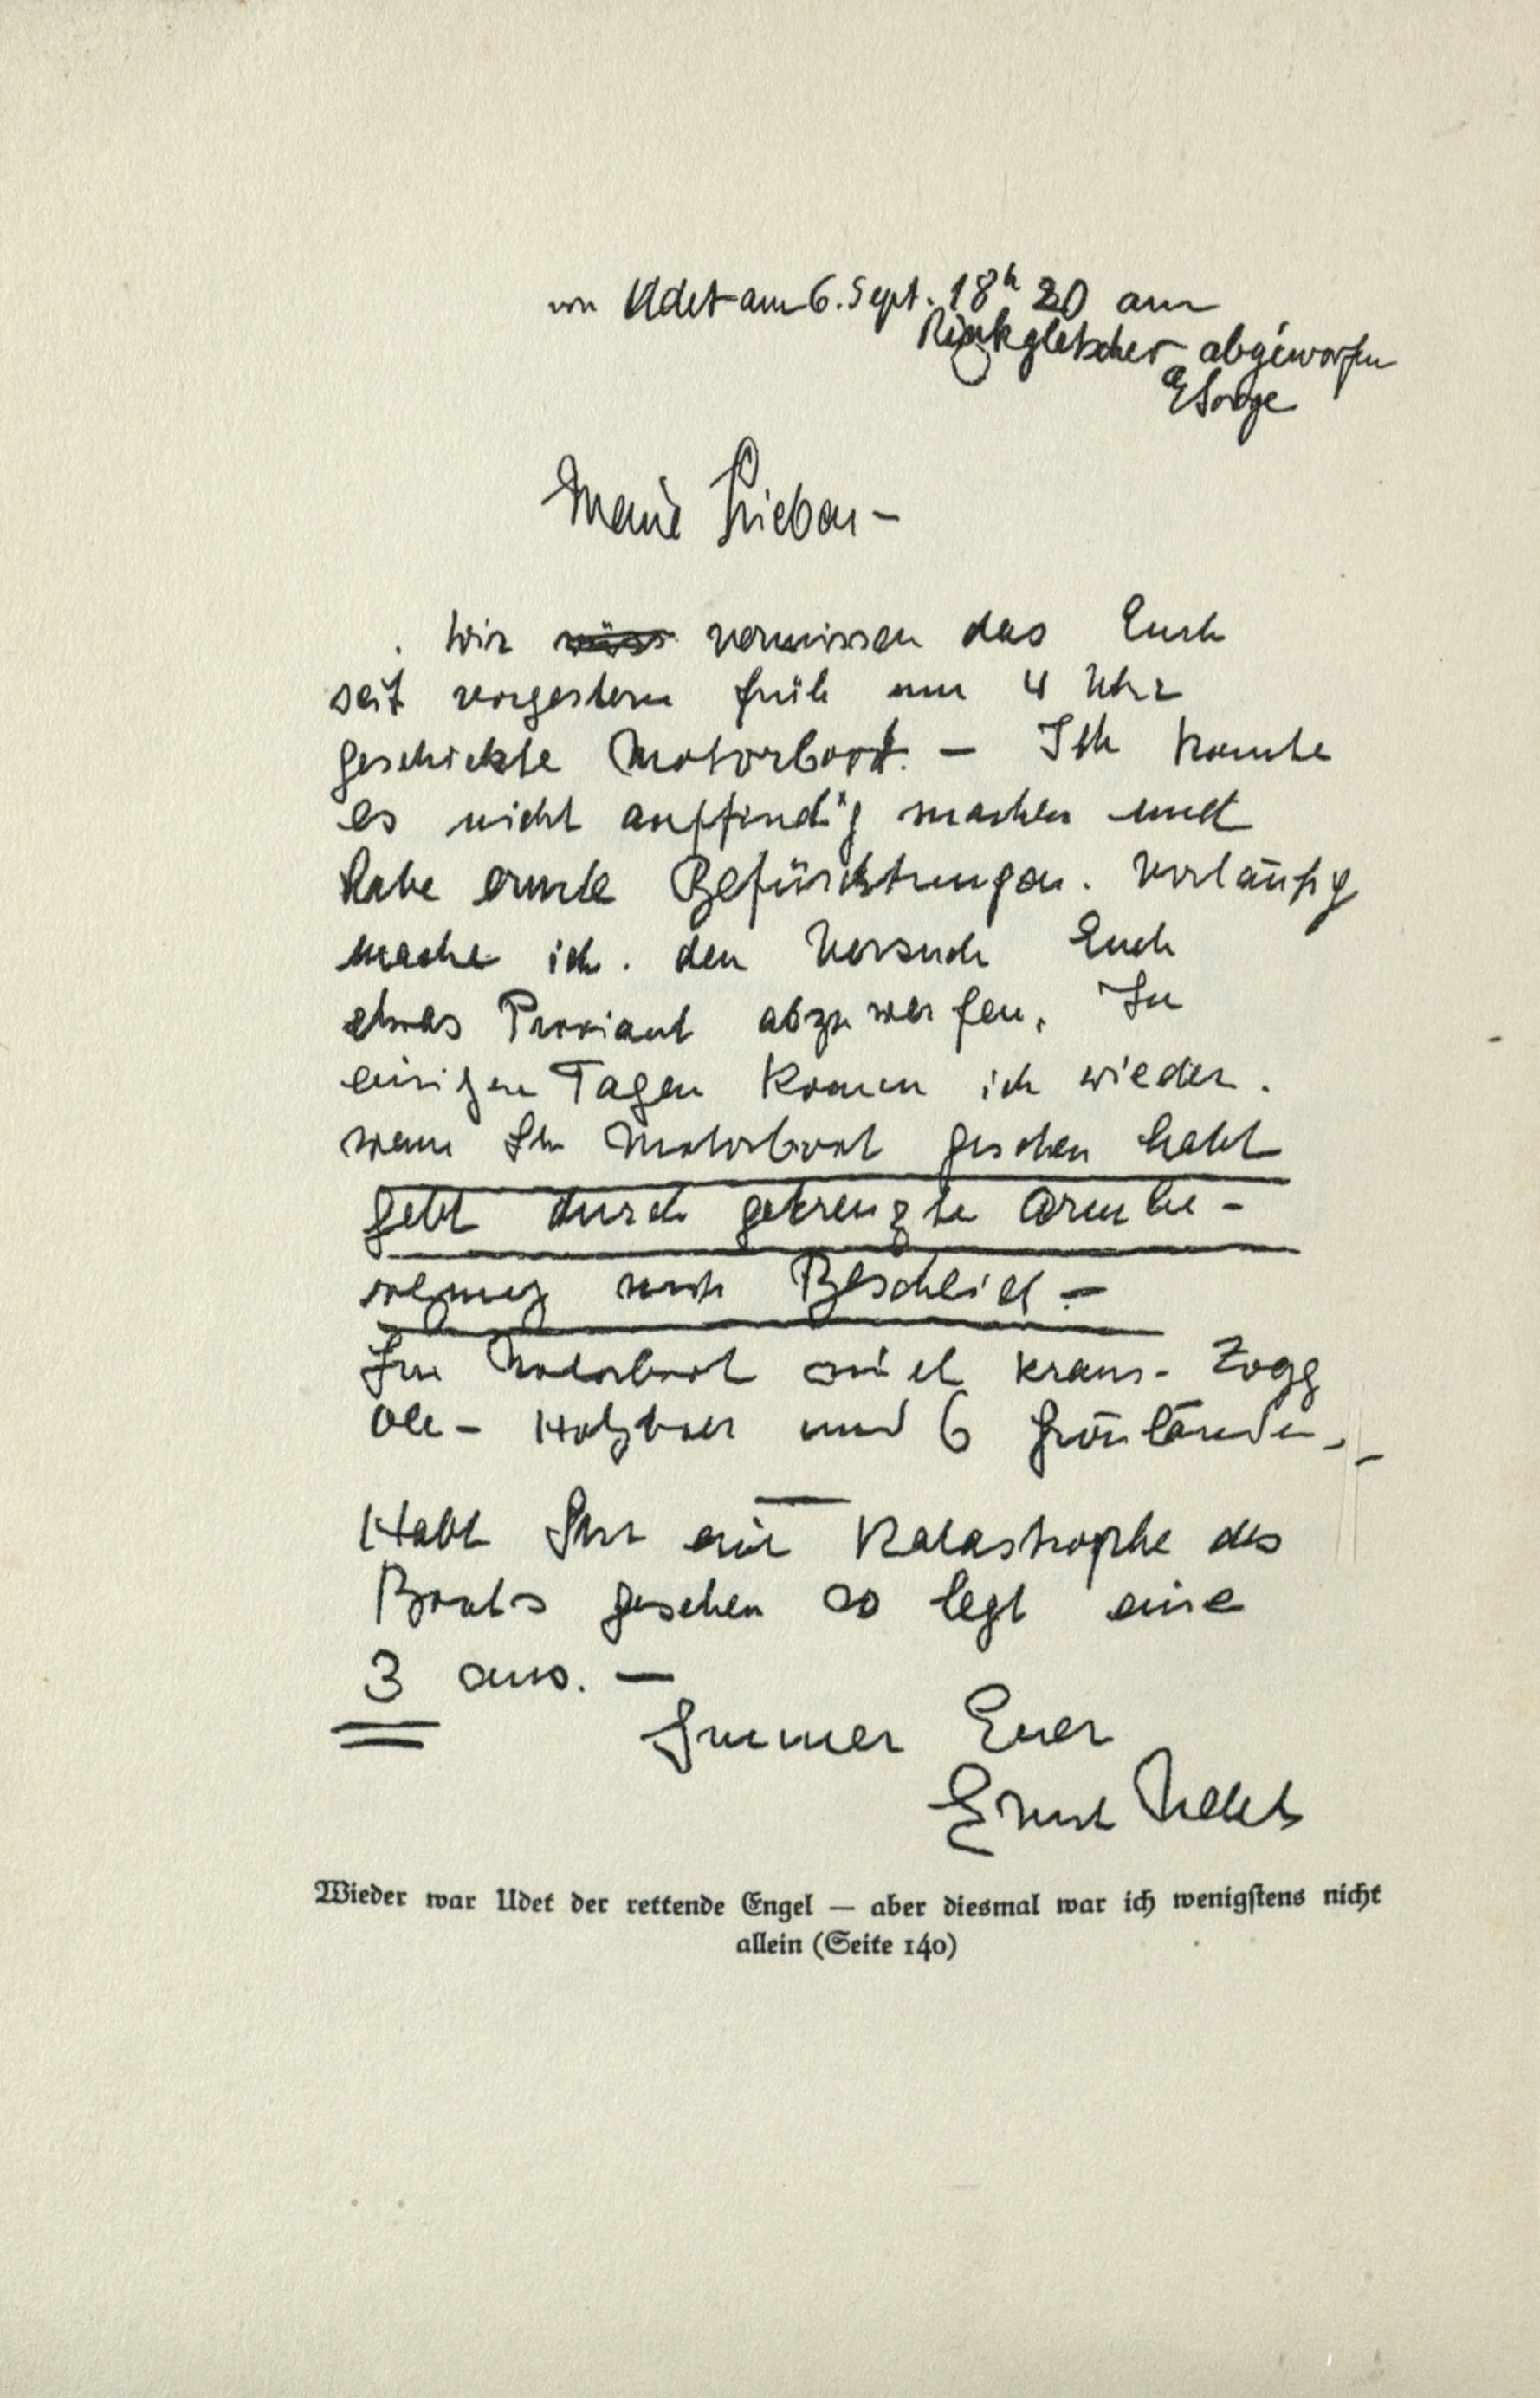 von Udet am 6. Sept. 18h 20 am
Rinkgletscher abgeworfen
ESorge
Meine Lieben –
Wir vermissen das Euch
seit vorgestern früh um 4 Uhr
geschickte Motorboot. – Ich konnte
es nicht auffindig machen und
habe ernste Befürchtungen. Vorläufig
mache ich. den Versuch Euch
etwas Proviant abzuwerfen. In
einigen Tagen komm ich wieder.
wenn Ihr Motorboot gesehen habt
gebt durch gekreuzte Armbe-
wegung mir Bescheid –
Im Motorboot sind Kraus- Zogg
Ole – Holzboer und 6 Grönländer. –
Habt Ihr eine Katastrophe des
Boots gesehen so legt eine
3 aus. –
Immer Euer
Ernst Udet
Wieder war Udet der rettende Engel — aber diesmal war ich wenigstens nicht
allein (Seite 140)